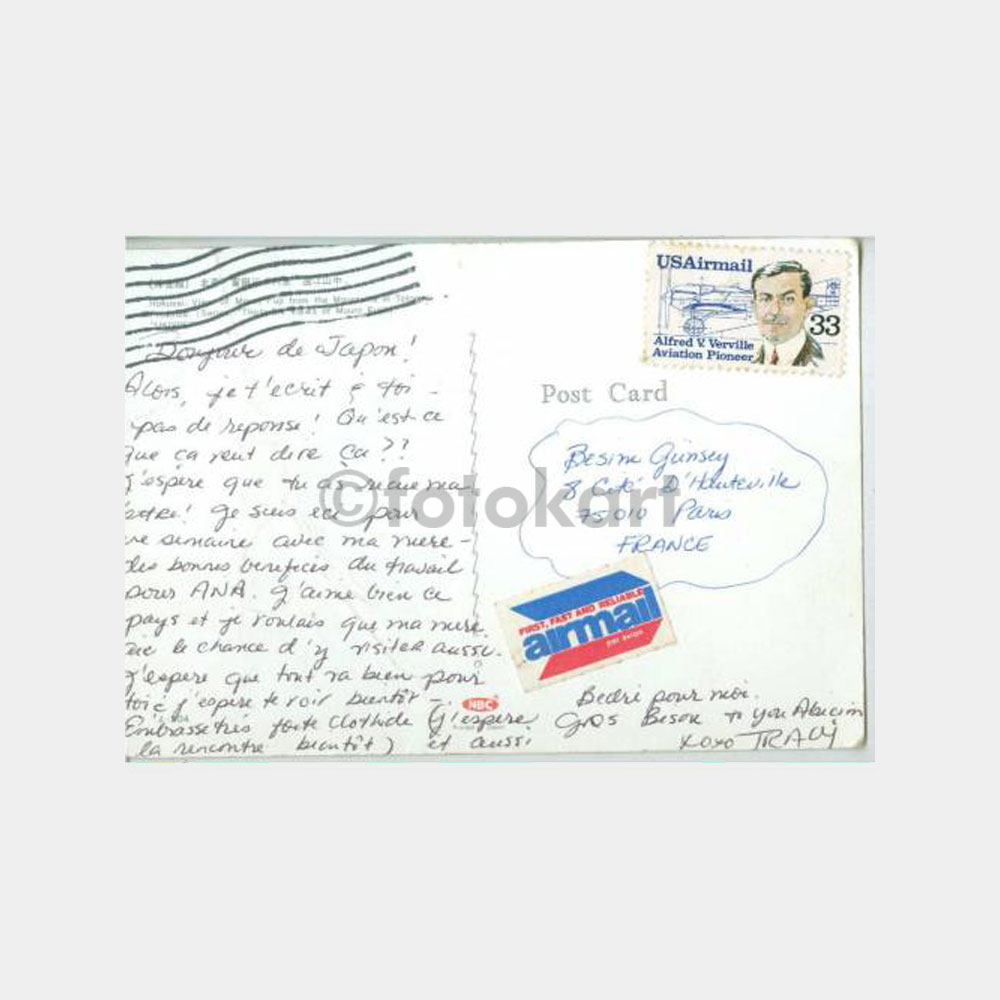 Hokusai: View of Mount Fuji from the Mountains in Totomi
Bonjour de Japon!
Alors, je t'ecrit à toi -
pas de reponse! Qu'est ce
que ça veut dire ça??
J'espère que tu as reçue ma
lettre! Je suis ici pour
une semaine avec ma mere -
les bonnes benefices du travail
pour ANA. J'aime bien ce
pays et je voulais que ma mere
aie le chance d'y visiter aussi.
J'espere que tout va bien pour
toi & j'espere te voir bientôt -
Embrasse très forte Clothide (j'espere
la rencontre bientôt) et aussi
Bedri pour moi.
Gros Besou to you Abicim
xoxo TRACY
USAirmail
33
Alfred V. Verville
Aviation Pioneer
Post Card
Besim Günsey
8 Cité D'Hauteville
75010 Paris
FRANCE
FIRST, FAST AND RELIABLE
airmail
par avion
NBC
©fotokart